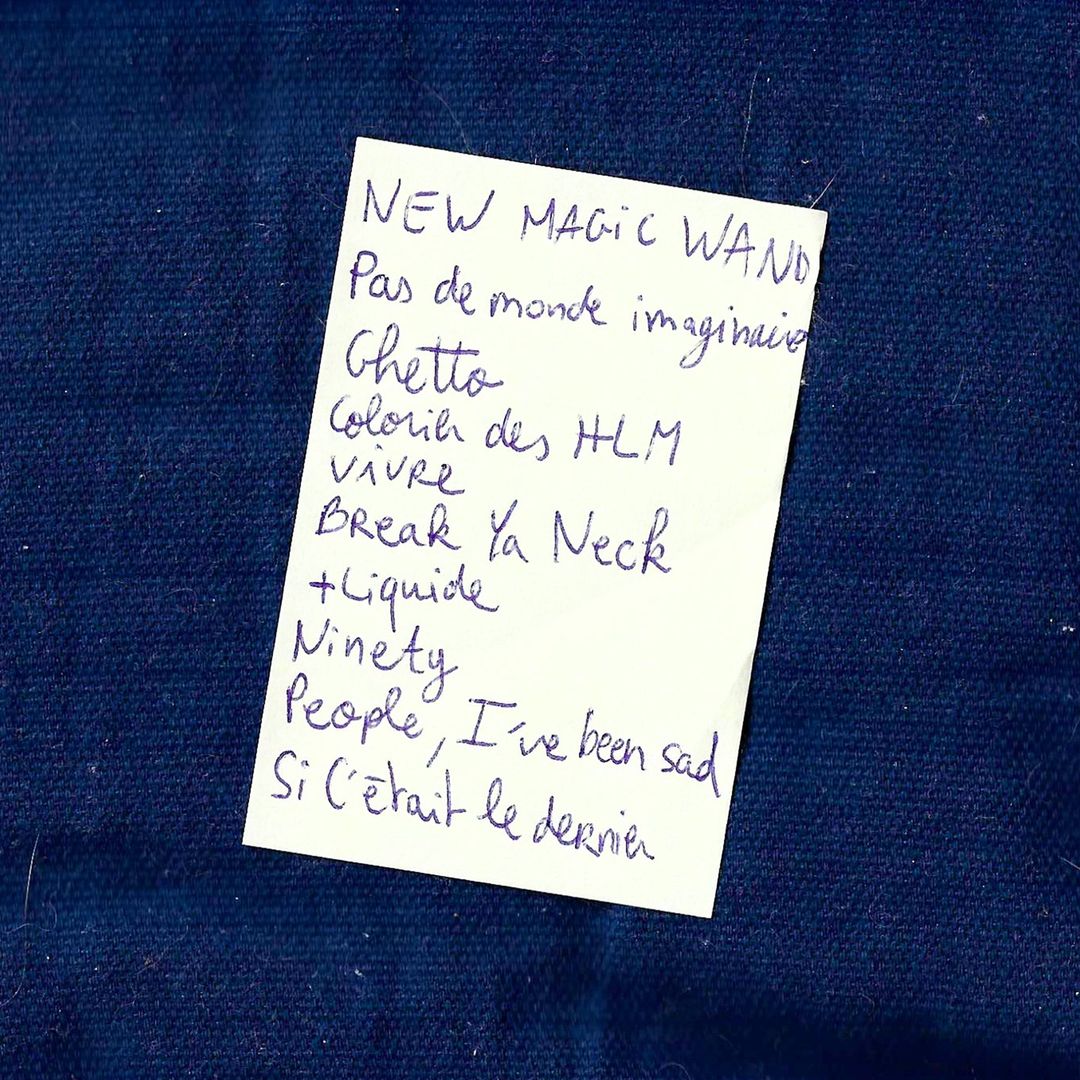 NEW MAGiC WAND
Pas de monde imaginaire
Ghetto
Colorier des HLM
ViVRe
BReak Ya Neck
+Liquide
Ninety
People, I've been sad
Si C'était le dernier